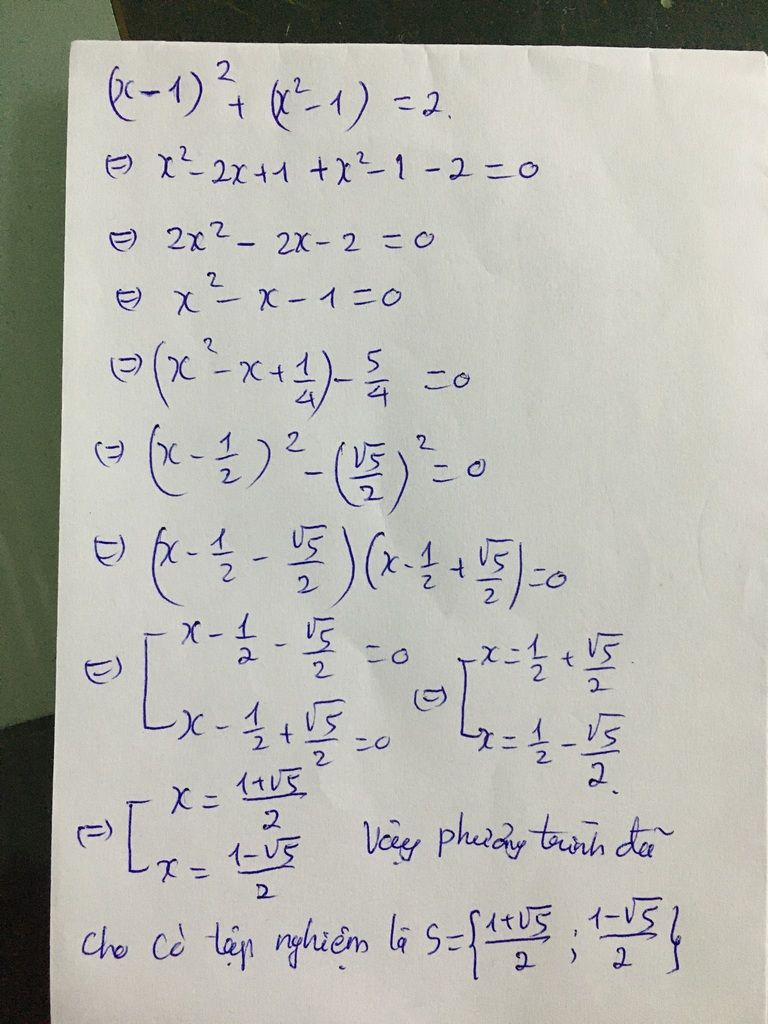 (x-1)² + (x²-1) = 2.
⇔ x² - 2x + 1 + x² - 1 - 2 = 0
⇔ 2x² - 2x - 2 = 0
⇔ x² - x - 1 = 0
⇔ (x² - x + 1/4) - 5/4 = 0
⇔ (x - 1/2)² - (√5/2)² = 0
⇔ (x - 1/2 - √5/2)(x - 1/2 + √5/2) = 0
⇔ [ x - 1/2 - √5/2 = 0 ⇔ [ x = 1/2 + √5/2
x - 1/2 + √5/2 = 0 x = 1/2 - √5/2.
⇔ [ x = (1+√5)/2
x = (1-√5)/2 Vậy phương trình đã
cho có tập nghiệm là S = {(1+√5)/2 ; (1-√5)/2}